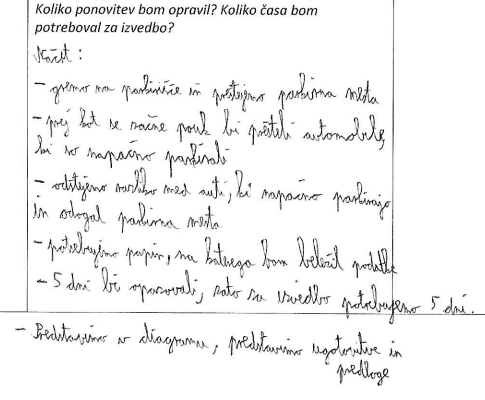 Koliko ponovitev bom opravil? Koliko časa bom
potreboval za izvedbo?
Načrt:
- gremo na parkirišče in preštejemo parkirna mesta
- prej kot se začne pouk bi prešteli avtomobile,
ki so napačno parkirali
- odštejemo razliko med avti, ki napačno parkirajo
in parkirna mesta
- potrebujemo papir, na katerega bom beležil podatke
- 5 dni bi opazovali, zato za izvedbo potrebujemo 5 dni.
- Predstavimo v diagramu, predstavimo ugotovitve in
predloge